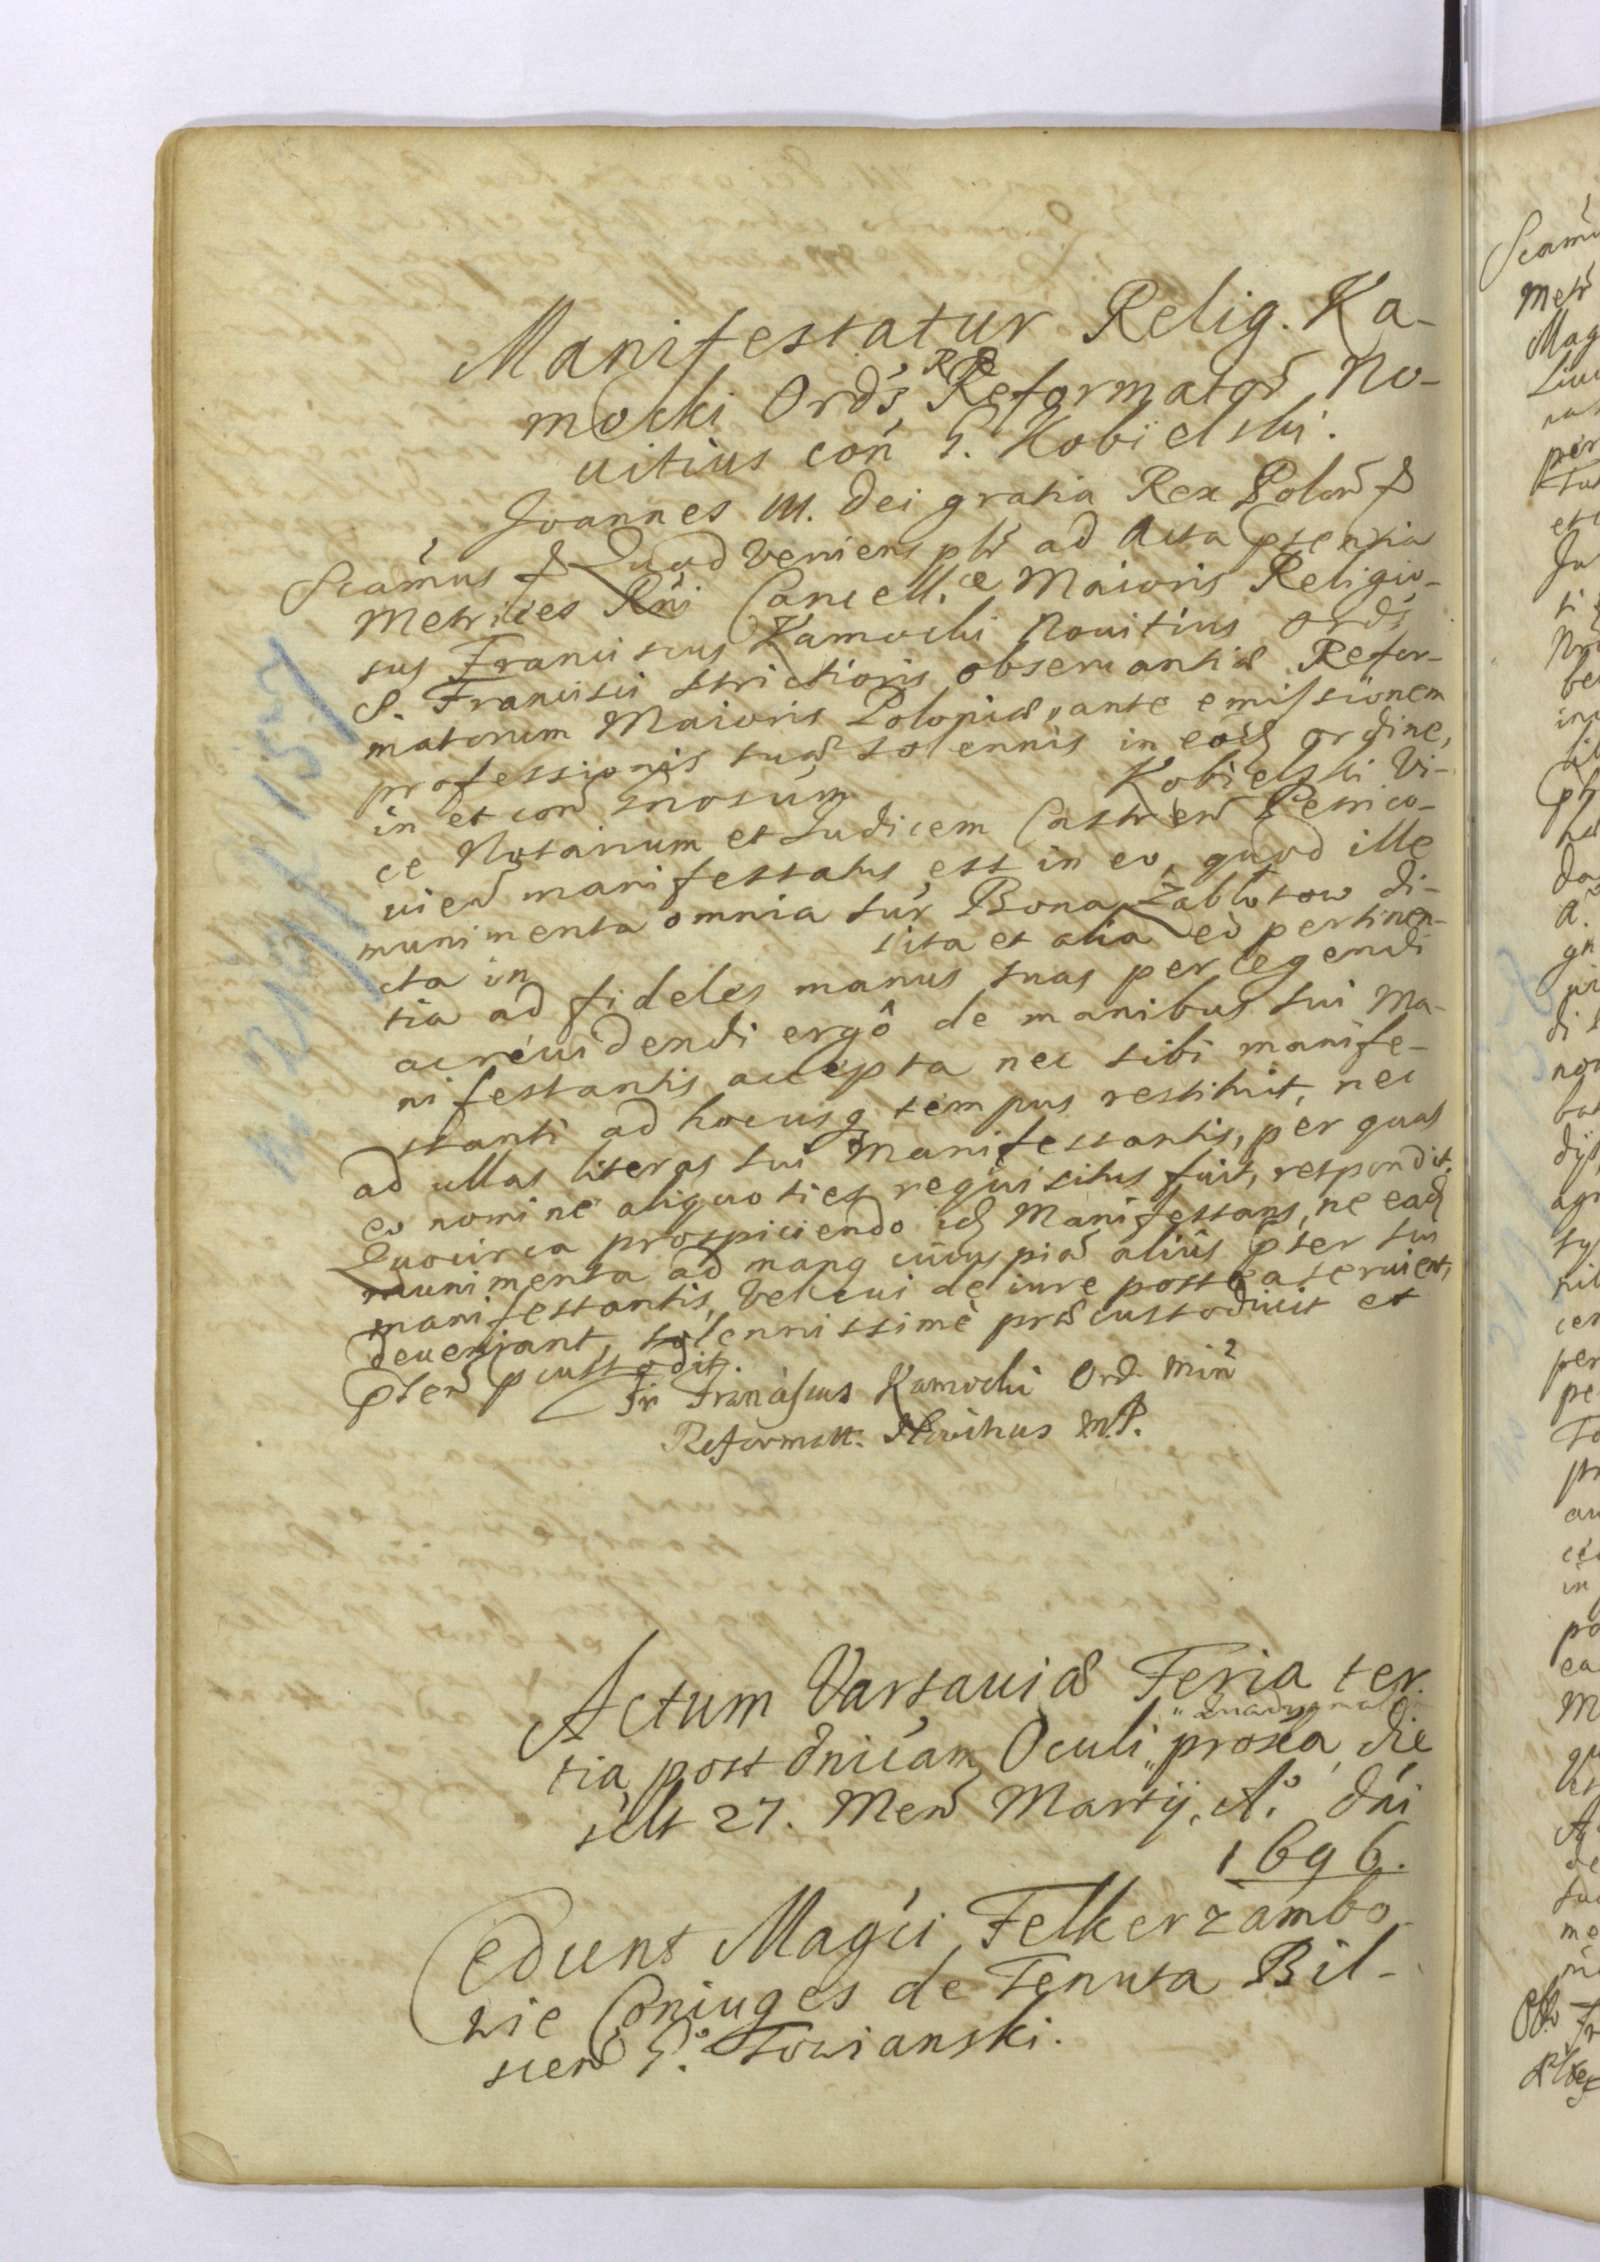 Manifestatur Relig. Ka-
mocki Ord's RR Reformator No-
uitius con G. Kobielski.
Joannes III. Dei gratia Rex Polon &
Scamus & Quod veniens plr ad Acta ptentia
Metrices Rni Cancell.æ Maioris Religio-
sus Franciscus Kamocki Nouitius Ord's
S. Francisci strictioris obseruantiæ Refor-
matorum Maioris Poloniæ, ante emissionem
professionis suæ solennis in eod ordine,
in et con Gnosum Kobielski Vi-
ce Notarium et Iudicem Castren Petrico-
uien manifestatus est in eo, quod ille
munimenta omnia sur Bona Zablotow di-
cta in sita et alia eo pertinen-
tia ad fideles manus suas perlegendi
ac reuidendi ergô de manibus sui Ma-
nifestantis accepta nec sibi manife-
stanti ad hocusq tempus restituit, nec
ad ullas literas sui Manifestantis, per quas
eo nomine aliquoties requisitus fuit, respondit.
Quocirca prospiciendo id Manifestans, ne ead
munimenta ad mang cuiuspia alius pter sui
manifestantis, vel cui de iure postea seruient,
deueniant, solennissimè præcustodiuit et
pten pcustodit.
Fr Franciscus Kamocki Ord. Min
Reformatt. Novitius M.P.
Actum Varsauiæ Feria ter-
tia post dnicam Oculi
"quadragmalem
" proxa, die
scilt 27. Men Martij. A.° dni
1696.
Cedunt Magci Felkerzambo-
wie Coniuges de Tenuta Bil-
scen G.° Towianski.